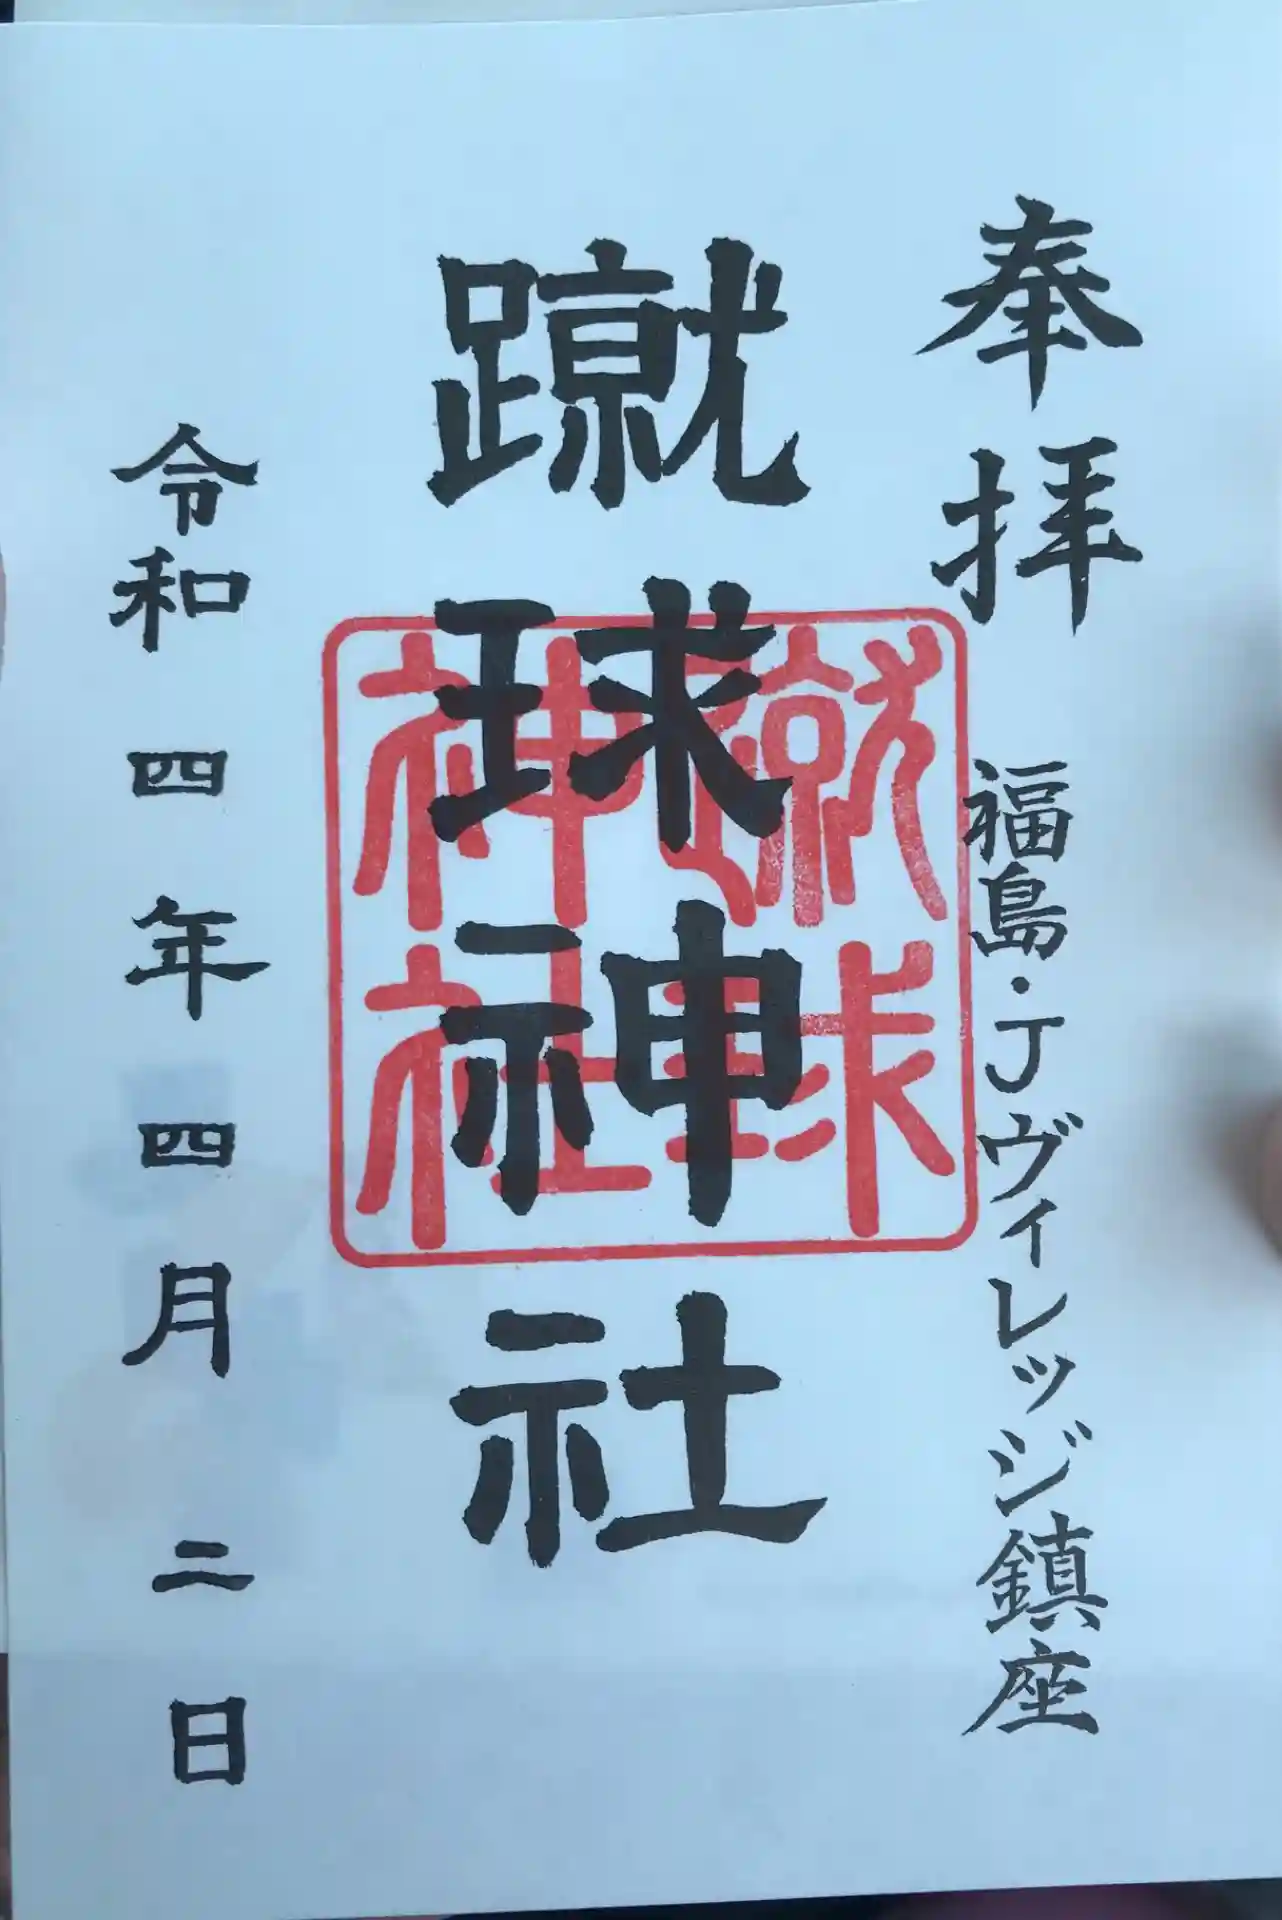 奉拝
福島・Jヴィレッジ鎮座
蹴球神社
蹴球
神社
令和四年四月二日